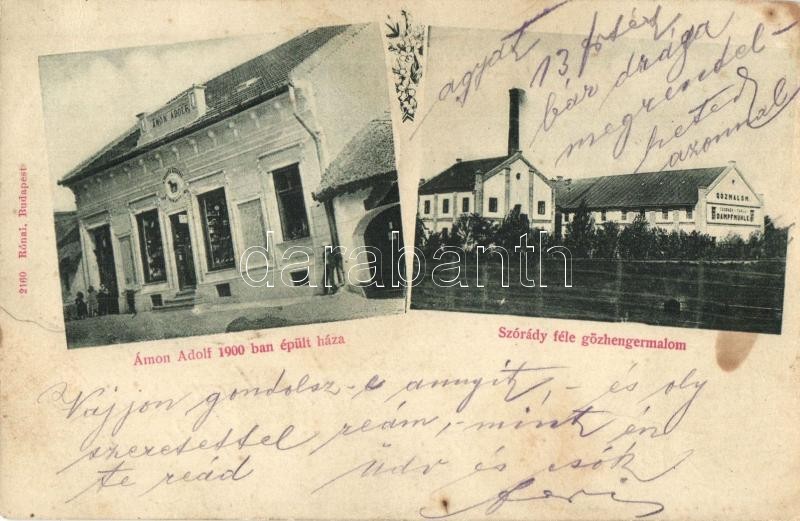 agyát 13
bár drága
megrendel-
heted
azonnal
ÁMON ADOLF
GŐZMALOM.
DAMPFMÜHLE
darabanth
2160 Rónai, Budapest
Ámon Adolf 1900 ban épült háza
Szórády féle gőzhengermalom
Vajjon gondolsz-e annyit, - és oly
szeretettel reám, - mint én
te reád Üdv és csók